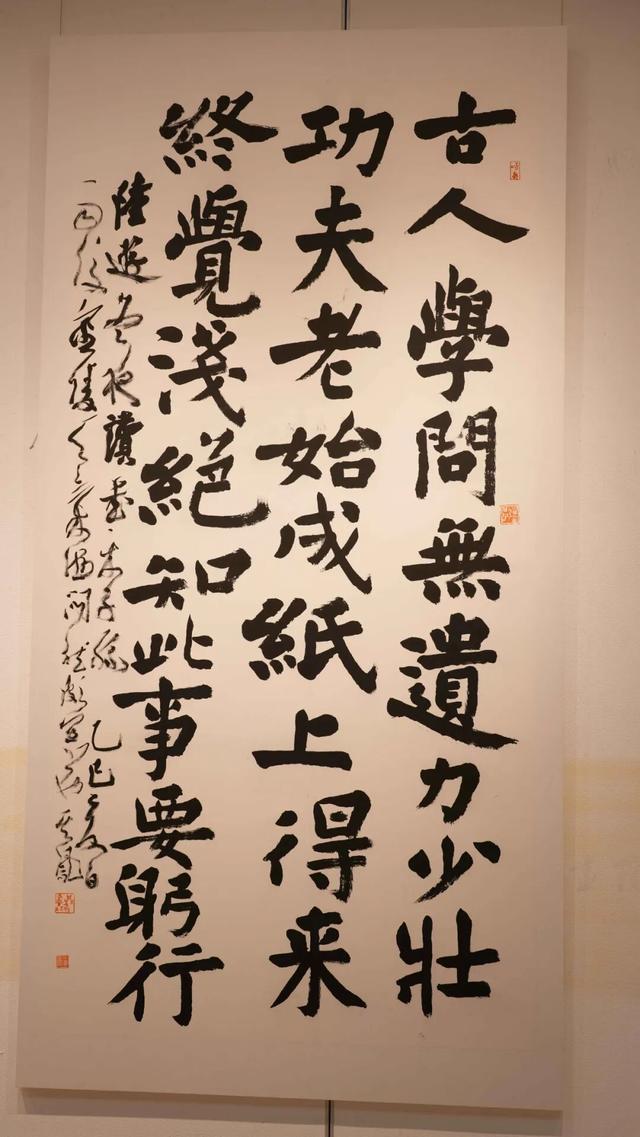 古人學問無遺力少壯
功夫老始成紙上得来
終覺淺絕知此事要躬行
陸游冬夜讀書示子聿 乙巳